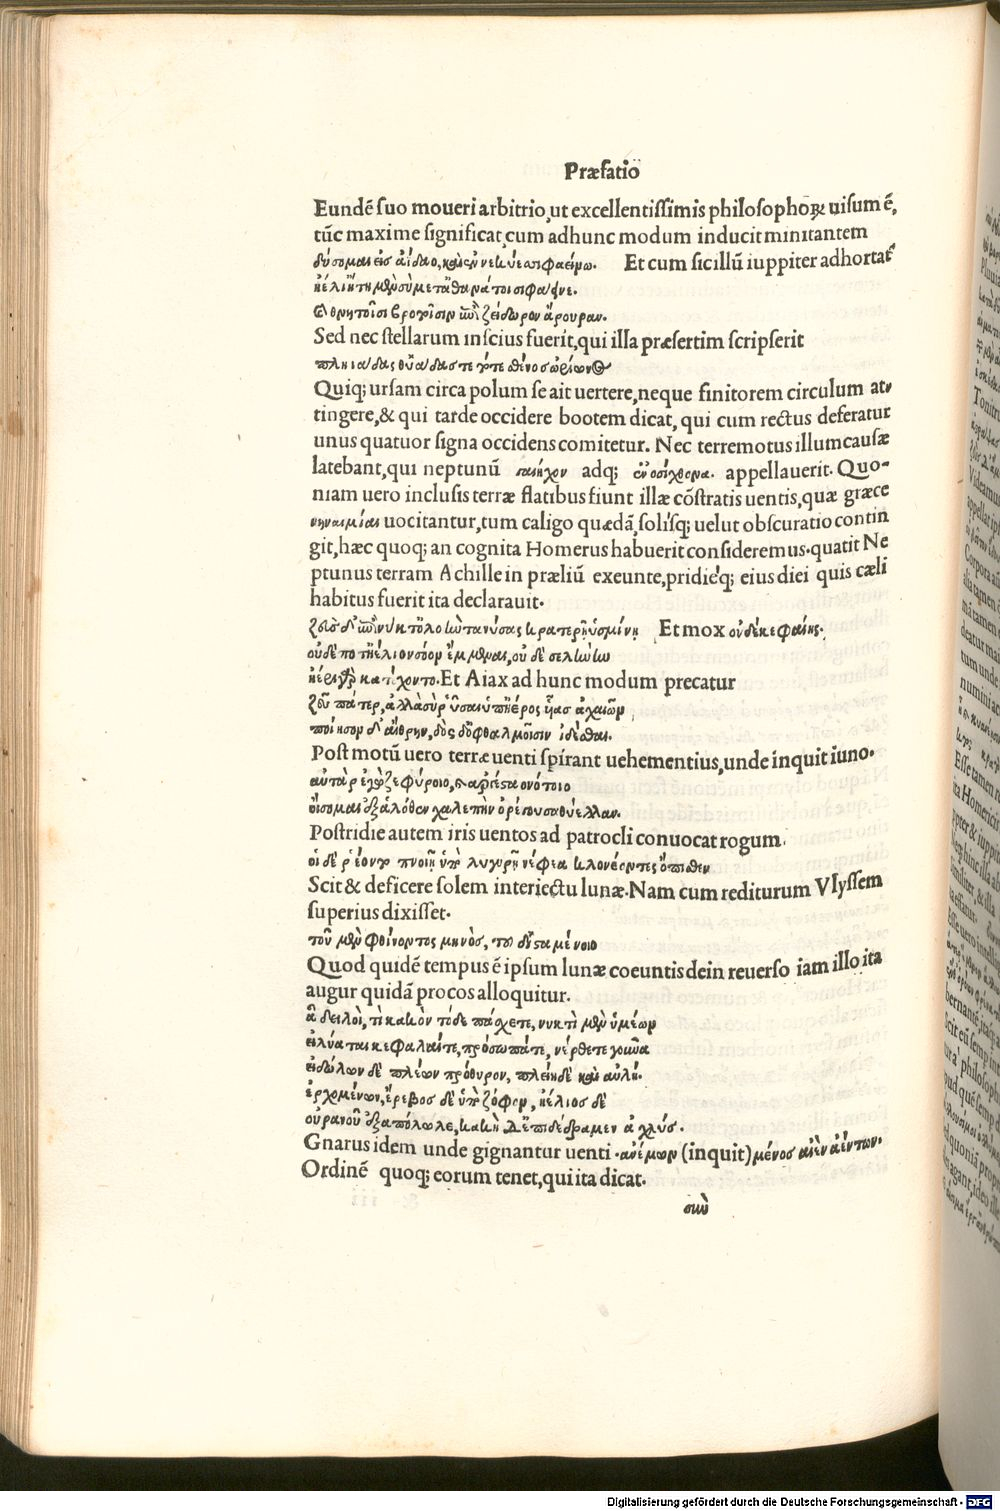 Præfatio
Eundẽ suo moueri arbitrio, ut excellentissimis philosophoꝝ uisum ẽ,
tũc maxime significat, cum adhunc modum inducit minitantem
δύσομαι εἰς ἀίδαο, καὶ ἐν νεκύεσσι φαείνω. Et cum sic illũ iuppiter adhortat᷑
ἠέλι ἤτοι μὲν σὺ μετ' ἀθανάτοισι φάεινε.
Sed nec stellarum inscius fuerit, qui illa præsertim scripserit
πληιάδας θ' ὑάδας τε τότε σθένος ὠρίωνος
Quiq; ursam circa polum se ait uertere, neque finitorem circulum at-
tingere, & qui tarde occidere bootem dicat, qui cum rectus deferatur
unus quatuor signa occidens comitetur. Nec terremotus illum causæ
latebant, qui neptunũ adq; appellauerit. Quo-
niam uero inclusis terræ flatibus fiunt illæ cõstratis uentis, quæ græce
νηνεμίαι uocitantur, tum caligo quædã, solisq; uelut obscuratio contin
git, hæc quoq; an cognita Homerus habuerit consideremus. quatit Ne
ptunus terram Achille in præliũ exeunte, pridieq; eius diei quis cæli
habitus fuerit ita declarauit.
ζεὺς δ' ἐπὶ νύκτ' ὀλοὴν τάνυσας κρατερῇ ὑσμίνῃ Et mox οὐδέ κε φαίης.
οὐδέ ποτ' ἠέλιον σόον ἔμμεναι, οὐδὲ σελήνην
ἠέρι γὰρ κατέχοντο. Et Aiax ad hunc modum precatur
ζεῦ πάτερ, ἀλλὰ σὺ ῥῦσαι ὑπ' ἠέρος υἷας ἀχαιῶν
ποίησον δ' αἴθρην, δὸς δ' ὀφθαλμοῖσιν ἰδέσθαι.
Post motũ uero terræ uenti spirant uehementius, unde inquit iuno.
αὐτὰρ ἐγὼ ζεφύροιο, καὶ ἀργέσταο νότοιο
εἴσομαι ἐξ ἁλόθεν χαλεπὴν ὀρέουσα θύελλαν.
Postridie autem iris uentos ad patrocli conuocat rogum.
Scit & deficere solem interiectu lunæ. Nam cum rediturum Vlyssem
superius dixisset.
τοῦ μὲν φθίνοντος μηνὸς, τοῦ δ' ἱσταμένοιο
Quod quidẽ tempus ẽ ipsum lunæ coeuntis dein reuerso iam illo ita
augur quidã procos alloquitur.
ἆ δειλοὶ, τί κακὸν τόδε πάσχετε, νυκτὶ μὲν ὑμέων
εἰλύαται κεφαλαί τε, πρόσωπά τε, νέρθε τε γοῦνα
εἰδώλων δὲ πλέων πρόθυρον, πλείη δὲ καὶ αὐλή.
ἐρχομένων, ἔρεβος δὲ ὑπὸ ζόφον, ἠέλιος δὲ
οὐρανοῦ ἐξαπόλωλε, κακὴ δ' ἐπιδέδρομεν ἀχλύς.
Gnarus idem unde gignantur uenti. ἀνέμων (inquit) μένος αἰὲν ἀέντων.
Ordinẽ quoq; eorum tenet, qui ita dicat.
σὺν